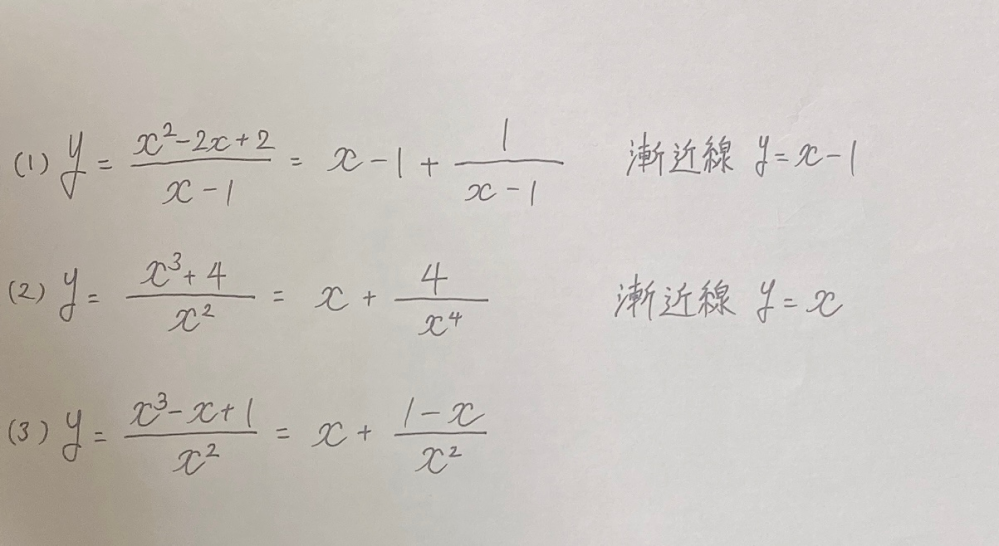 (1) y = \frac{x^2-2x+2}{x-1} = x-1+\frac{1}{x-1} 漸近線 y=x-1
(2) y = \frac{x^3+4}{x^2} = x+\frac{4}{x^4} 漸近線 y=x
(3) y = \frac{x^3-x+1}{x^2} = x+\frac{1-x}{x^2}